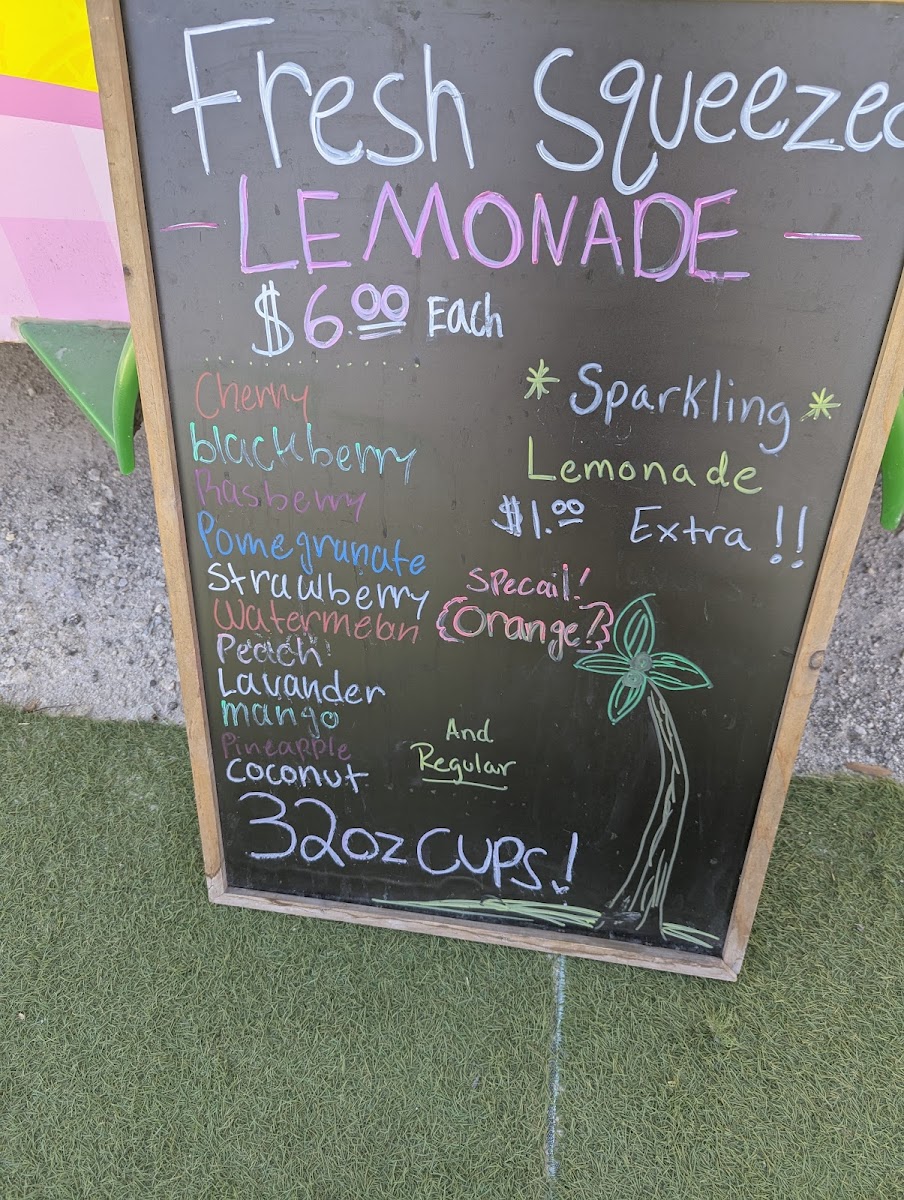 Fresh Squeezed
- LEMONADE -
$6.00 Each
Cherry
blackberry
Rasberry
Pomegranate
Strawberry
Watermelon
Peach!
Lavander
mango
Pineapple
Coconut
* Sparkling *
Lemonade
$1.00 Extra!!
Specail!
Orange!
And
Regular
32oz Cups!